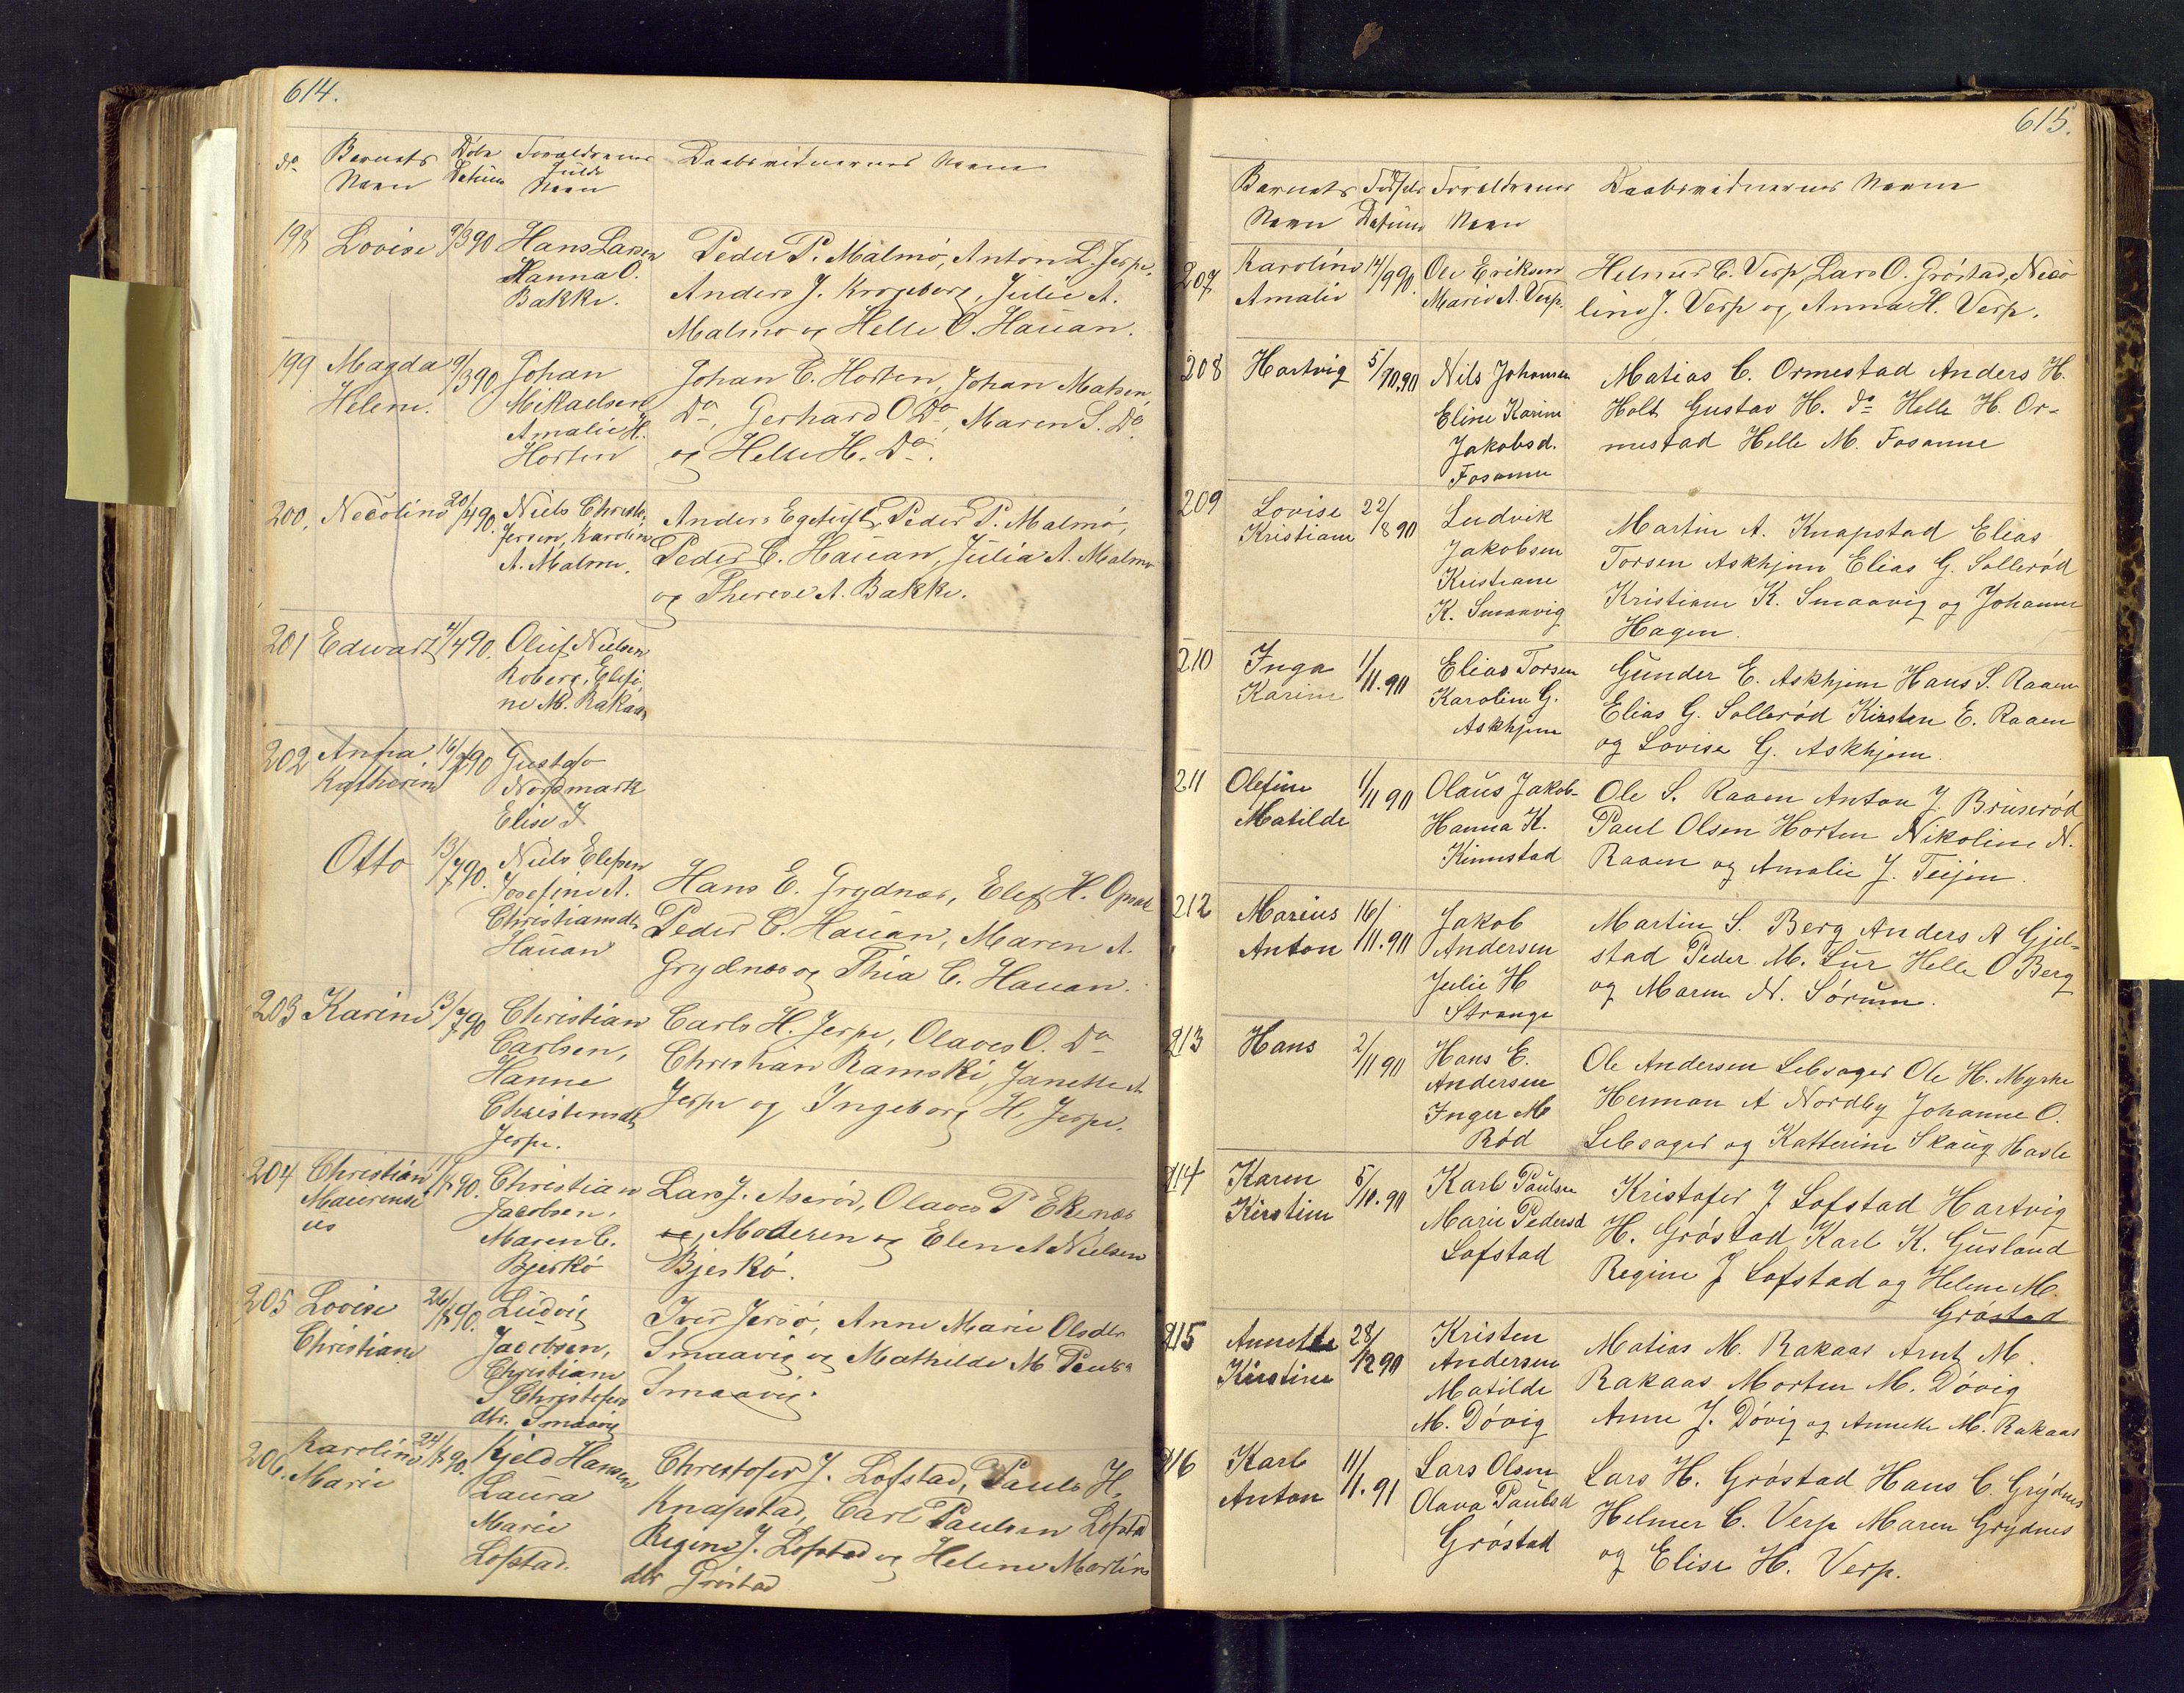 614.
No Barnets Døbe Forældrenes Daabsvidnernes Navne
Navn Datum fulde Navn
198 Lovise 9/3 90 Hans Larsen Peder P. Malmö, Anton L. Jerpe,
Hanna O. Anders J. Krogeborg, Julie A.
Bakke. Malmö og Helle O. Hauan.
199 Magda 9/3 90 Johan Johan C. Horten, Johan Matsen
Helene. Mekaelsen Do, Gerhard O Do, Maren S. Do
Amalie H. og Helle H. Do.
Horten
200. Necoline 20/4 90. Niels Christ- Anders Egetvejt, Peder P. Malmö,
Jersen, Karolin Peder C. Hauan, Julia A. Malmö
A. Malmö. og Therese A. Bakke.
201 Edwart 4/4 90. Oluf Nielsen
Roberg, Elefi-
ne M. Rakaas
202 Anna 16/ 90 Gustav
Katherine Nordmark
Elise J
Otto 13/7 90. Niels Elefsen
Josefine A. Hans E. Grydnes, Elef H. Opsal
Christiansdtr Peder C. Hauan, Maren A.
Hauan Grydnes og Thia C. Hauan.
203 Karine 13/7 90 Christian Carls H. Jerpe, Olaves O. Do
Carlsen, Christian Ramski, Janette A
Hanne Jerpe og Ingeborg H. Jerpe.
Christensdt
Jerpe.
204 Christian 90. Christian Lars J. Aserød, Olaves P Ekenes
Maurensi Jacobsen, og, Moderen og Elen A Nielsen
us Maren C. Bjerkö.
Bjerkö
205 Lovise 26/ 90. Ludvig Iver Jersö, Anne Marie Olsdtr
Christiane Jacobsen, Smaavig og Mathilde M. Pauls
Christiane Smaavig.
S Christofers
dtr. Smaavig
206. Karoline 24/ 90. Kjeld Hansen Christofer J. Lofstad, Pauls H,
Marie Laura Knapstad, Carl Paulsen Lofstad
Marie Regine J. Lofstad og Helene Martins
Lofstad. dtr Gröstad
615.
Barnets Fødsels Forældrenes Daabsvidnernes Navne
Navn Datum Navn
207 Karoline 14/9 90. Ole Eriksen Helmer C. Verp, Lars O. Gröstad, Neco
Amalie Marie A. Verp. line J. Verp og Anna H. Verp.
208 Hartvig 5/10. 90 Nils Johansen Matias C. Ormestad Anders H.
Eline Karine Holt Gustav H. do Helle H. Or-
Jakobsd. mestad Helle M. Fosanne
Fosanne
209 Lovise 22/8 90 Ludvik Martin A. Knapstad Elias
Kristiane Jakobsen Torsen Askhjem Elias G. Sollerød
Kristiane Kristiane K. Smaavig og Johanne
K. Smaavig Hagen.
210 Inga 1/11. 90 Elias Torsen Gunder E. Askhjem Hans S. Raaen
Karine Karoline G. Elias G. Sollerød Kirsten E. Raaen
Askhjem og Lovise G. Askhjem.
211 Olefine 1/11 90 Olaus Jakob- Ole S. Raaen Anton J. Bruserød
Matilde Hanna K. Paul Olsen Horten Nikoline N.
Kinnstad Raaen og Amalie J. Teijen.
212 Marius 16/11. 90 Jakob Martin S. Berg Anders A Gjel-
Anton Andersen stad Peder M. Lur Helle O Berg
Julie H og Maren N. Sörum.
Strange
213 Hans 2/11 90 Hans E. Ole Andersen Lebsager Ole H. Myrke
Andersen Herman A Nordby Johanne O.
Inger M Lebsager og Katterine Skaug Hasle
Röd
214 Karen 5/10. 90 Karl Paulsen Kristofer J Lofstad Hartvig
Kirstine Marie Pedersd H. Gröstad Karl K. Gusland
Lofstad Regine J Lofstad og Helene M.
Gröstad
215 Annette 28/12 90 Kristen Matias M. Rakaas Arnt M.
Kirstine Andersen Rakaas Morten M. Dövig
Matilde Anne J. Dövig og Annette M. Rakaas
M. Dövig
216 Karl 11/1. 91 Lars Olsen Lars H. Gröstad Hans C. Grydnes
Anton Olava Paulsd Helmer C. Verp Maren Grydnes
Gröstad og Elise H. Verp.